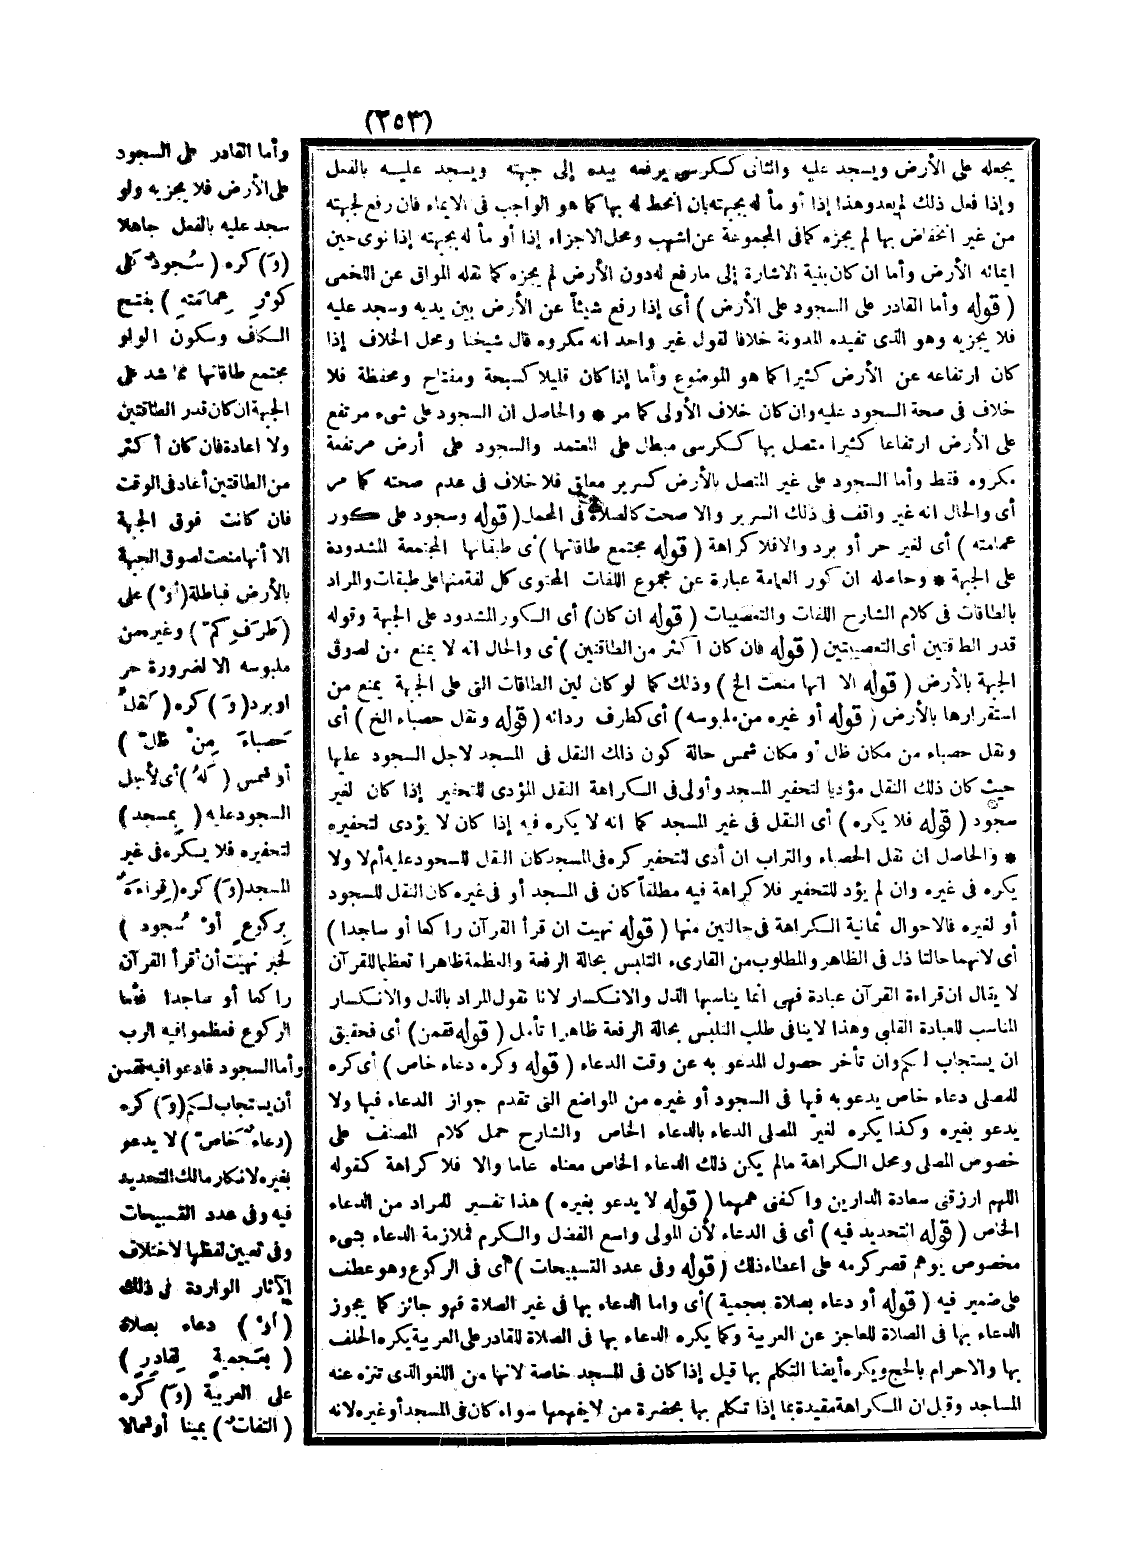 (٢٥٣)
يجعله على الأرض ويسجد عليه والثانى ككرسى يرفعه بيده إلى جبهته ويسجد عليه بالفعل
وإذا فعل ذلك لم يعد وهذا إذا أومأ له بجبهته بان انحط له بها كما هو الواجب فى الايماء فان رفع لجبهته
من غير انخفاض بها لم يجزه كما فى المجموعة عن اشهب ومحل الاجزاء إذا أومأ له بجبهته إذا نوى حين
ايمائه الأرض وأما ان كان بنية الاشارة إلى ما رفع له دون الأرض لم يجزه كما نقله المواق عن اللخمى
( قوله وأما القادر على السجود على الأرض ) أى إذا رفع شيئاً عن الأرض بين يديه وسجد عليه
فلا يجزيه وهو الذى تفيده المدونة خلافا لقول غير واحد انه مكروه قال شيخنا ومحل الخلاف إذا
كان ارتفاعه عن الأرض كثيرا كما هو الموضوع وأما إذا كان قليلا كسبحة ومفتاح ومحفظة فلا
خلاف فى صحة السجود عليه وان كان خلاف الأولى كما مر * والحاصل ان السجود على شىء مرتفع
على الأرض ارتفاعا كثيرا متصل بها ككرسى مبطل على المعتمد والسجود على أرض مرتفعة
مكروه فقط وأما السجود على غير المتصل بالأرض كسرير معلق فلا خلاف فى عدم صحته كما مر
أى والحال انه غير واقف فى ذلك السرير والا صحت كالصلاة فى المحمل ( قوله وسجود على كور
عمامته ) أى لغير حر أو برد والا فلا كراهة ( قوله مجتمع طاقاتها ) أى طبقاتها المجتمعة المشدودة
على الجبهة * وحاصله ان كور العمامة عبارة عن مجموع اللفات المحتوى كل لفة منها على طبقات والمراد
بالطاقات فى كلام الشارح اللفات والتعصيبات ( قوله ان كان) أى الكور المشدود على الجبهة وقوله
قدر الطاقتين أى التعصيبتين ( قوله فان كان أكثر من الطاقتين ) أى والحال انه لا يمنع من لصوق
الجبهة بالأرض ( قوله الا انها منعت الخ ) وذلك كما لو كان لين الطاقات التى على الجبهة يمنع من
استقرارها بالأرض ( قوله أو غيره من ملبوسه ) أى كطرف ردائه ( قوله ونقل حصباء الخ ) أى
ونقل حصباء من مكان ظل أو مكان شمس حالة كون ذلك النقل فى المسجد لاجل السجود عليها
حيث كان ذلك النقل مؤديا لتحفير المسجد وأولى فى الكراهة النقل المؤدى للتحفير إذا كان لغير
سجود ( قوله فلا يكره ) أى النقل فى غير المسجد كما انه لا يكره فيه إذا كان لا يؤدى لتحفيره
* والحاصل ان نقل الحصباء والتراب ان أدى للتحفير كره فى المسجد كان النقل للسجود عليه أم لا ولا
يكره فى غيره وان لم يؤد للتحفير فلا كراهة فيه مطلقاً كان فى المسجد أو فى غيره كان النقل للسجود
أو لغيره فالاحوال ثمانية الكراهة فى حالتين منها ( قوله نهيت ان قرأ القرآن راكعا أو ساجدا )
أى لانهما حالتا ذل فى الظاهر والمطلوب من القارىء التلبس بحالة الرفعة والعظمة ظاهرا تعظيما للقرآن
لا يقال ان قراءة القرآن عبادة فهى انما يناسبها الذل والانكسار لانا نقول المراد بالذل والانكسار
المناسب للعبادة القلبى وهذا لا ينافى طلب التلبس بحالة الرفعة ظاهرا تأمل ( قوله فقمن) أى فحقيق
ان يستجاب لكم وان تأخر حصول المدعو به عن وقت الدعاء ( قوله وكره دعاء خاص ) أى كره
للمصلى دعاء خاص يدعو به فيها فى السجود أو غيره من المواضع التى تقدم جواز الدعاء فيها ولا
يدعو بغيره وكذا يكره لغير المصلى الدعاء بالدعاء الخاص والشارح حمل كلام المصنف على
خصوص المصلى ومحل الكراهة مالم يكن ذلك الدعاء الخاص معناه عاما والا فلا كراهة كقوله
اللهم ارزقنى سعادة الدارين واكفنى همهما ( قوله لا يدعو بغيره ) هذا تفسير للمراد من الدعاء
الخاص ( قوله التحديد فيه ) أى فى الدعاء لأن المولى واسع الفضل والكرم فملازمة الدعاء بشىء
مخصوص يوهم قصر كرمه على اعطاء ذلك ( قوله وفى عدد التسبيحات ) أى فى الركوع وهو عطف
على ضمير فيه ( قوله أو دعاء بصلاة بعجمية ) أى واما الدعاء بها فى غير الصلاة فهو جائز كما يجوز
الدعاء بها فى الصلاة للعاجز عن العربية وكما يكره الدعاء بها فى الصلاة للقادر على العربية يكره الحلف
بها والاحرام بالحج ويكره أيضا التكلم بها قيل إذا كان فى المسجد خاصة لانها من اللغو الذى تنزه عنه
المساجد وقيل ان الكراهة مقيدة بما إذا تكلم بها بحضرة من لا يفهمها سواء كان فى المسجد أو غيره لانه
وأما القادر على السجود
على الأرض فلا يجزيه ولو
سجد عليه بالفعل جاهلا
(وَ) كره ( سُجودٌ على
كَوْرِ عِمامَتِهِ ) بفتح
الكاف وسكون الواو
مجتمع طاقاتها مما شد على
الجبهة ان كان قدر الطاقتين
ولا اعادة فان كان أكثر
من الطاقتين أعاد فى الوقت
فان كانت فوق الجبهة
الا أنها منعت لصوق الجبهة
بالأرض فباطلة (أوْ) على
(طَرَفِ كُمّ ) وغيره من
ملبوسه الا لضرورة حر
او برد (وَ) كره ( نَقلُ
حَصباءَ مِنْ ظلّ )
أو شمس ( لهُ ) أى لأجل
السجود عليه ( بِمسجد )
لتحفيره فلا يكره فى غير
المسجد (وَ) كره (قِراءَةٌ
بِركوعٍ أوْ سُجود )
لخبر نهيت أن أقرأ القرآن
راكعا أو ساجدا فأما
الركوع فعظموا فيه الرب
وأما السجود فادعوا فيه فقمن
أن يستجاب لكم (وَ) كره
(دعاءٌ خاصٌ ) لا يدعو
بغيره لانكار مالك التحديد
فيه وفى عدد التسبيحات
وفى تعيين لفظها لاختلاف
الآثار الواردة فى ذلك
(أوْ ) دعاء بصلاة
( بعَجميةٍ لِقادِرٍ )
على العربية (وَ) كره
( التفاتٌ ) يمينا أو شمالا